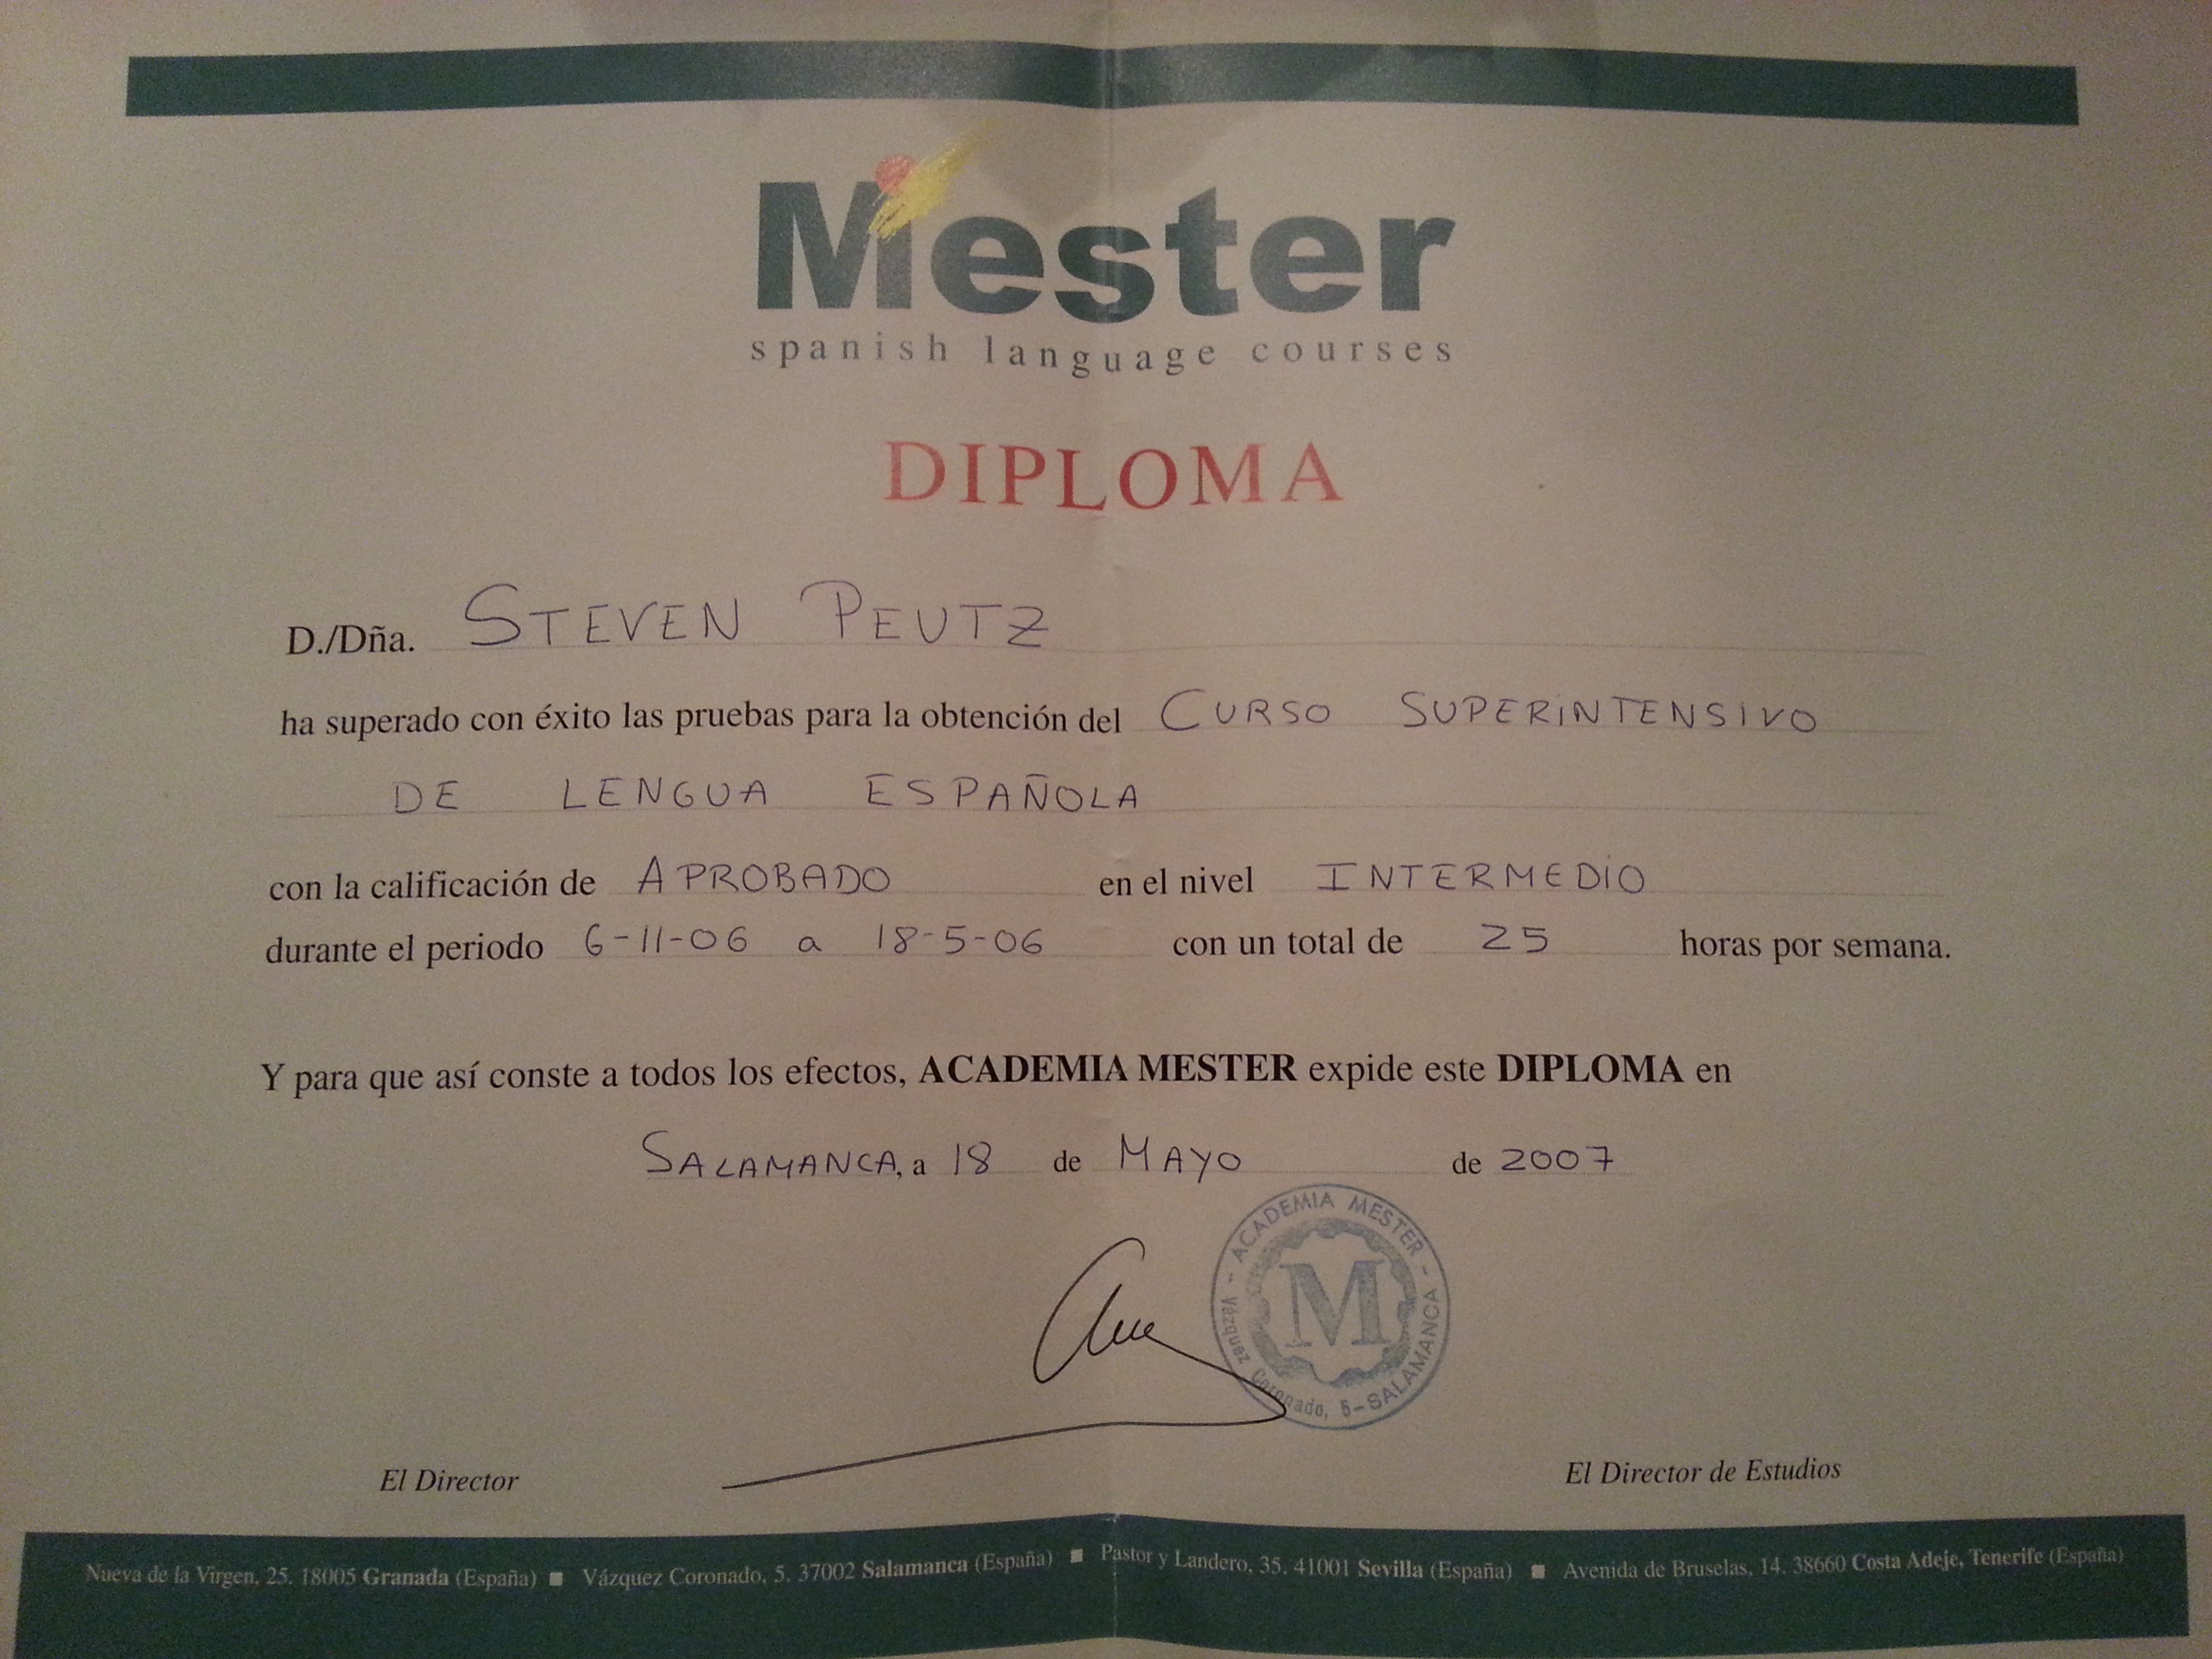 Mester
spanish language courses
DIPLOMA
D./Dña. STEVEN PEUTZ
ha superado con éxito las pruebas para la obtención del CURSO SUPERINTENSIVO
DE LENGUA ESPAÑOLA
con la calificación de APROBADO en el nivel INTERMEDIO
durante el periodo 6-11-06 a 18-5-06 con un total de 25 horas por semana.
Y para que así conste a todos los efectos, ACADEMIA MESTER expide este DIPLOMA en
SALAMANCA, a 18 de MAYO de 2007
- ACADEMIA MESTER -
M
Vázquez Coronado, 5 - SALAMANCA
El Director
El Director de Estudios
Nueva de la Virgen, 25. 18005 Granada (España) ■ Vázquez Coronado, 5. 37002 Salamanca (España) ■ Pastor y Landero, 35. 41001 Sevilla (España) ■ Avenida de Bruselas, 14. 38660 Costa Adeje, Tenerife (España)